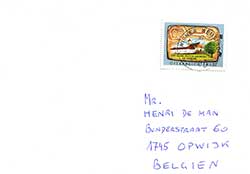 Mr.
HENRI DE MAN
BUNDERSTRAAT 60
1745 OPWIJK
BELGIEN